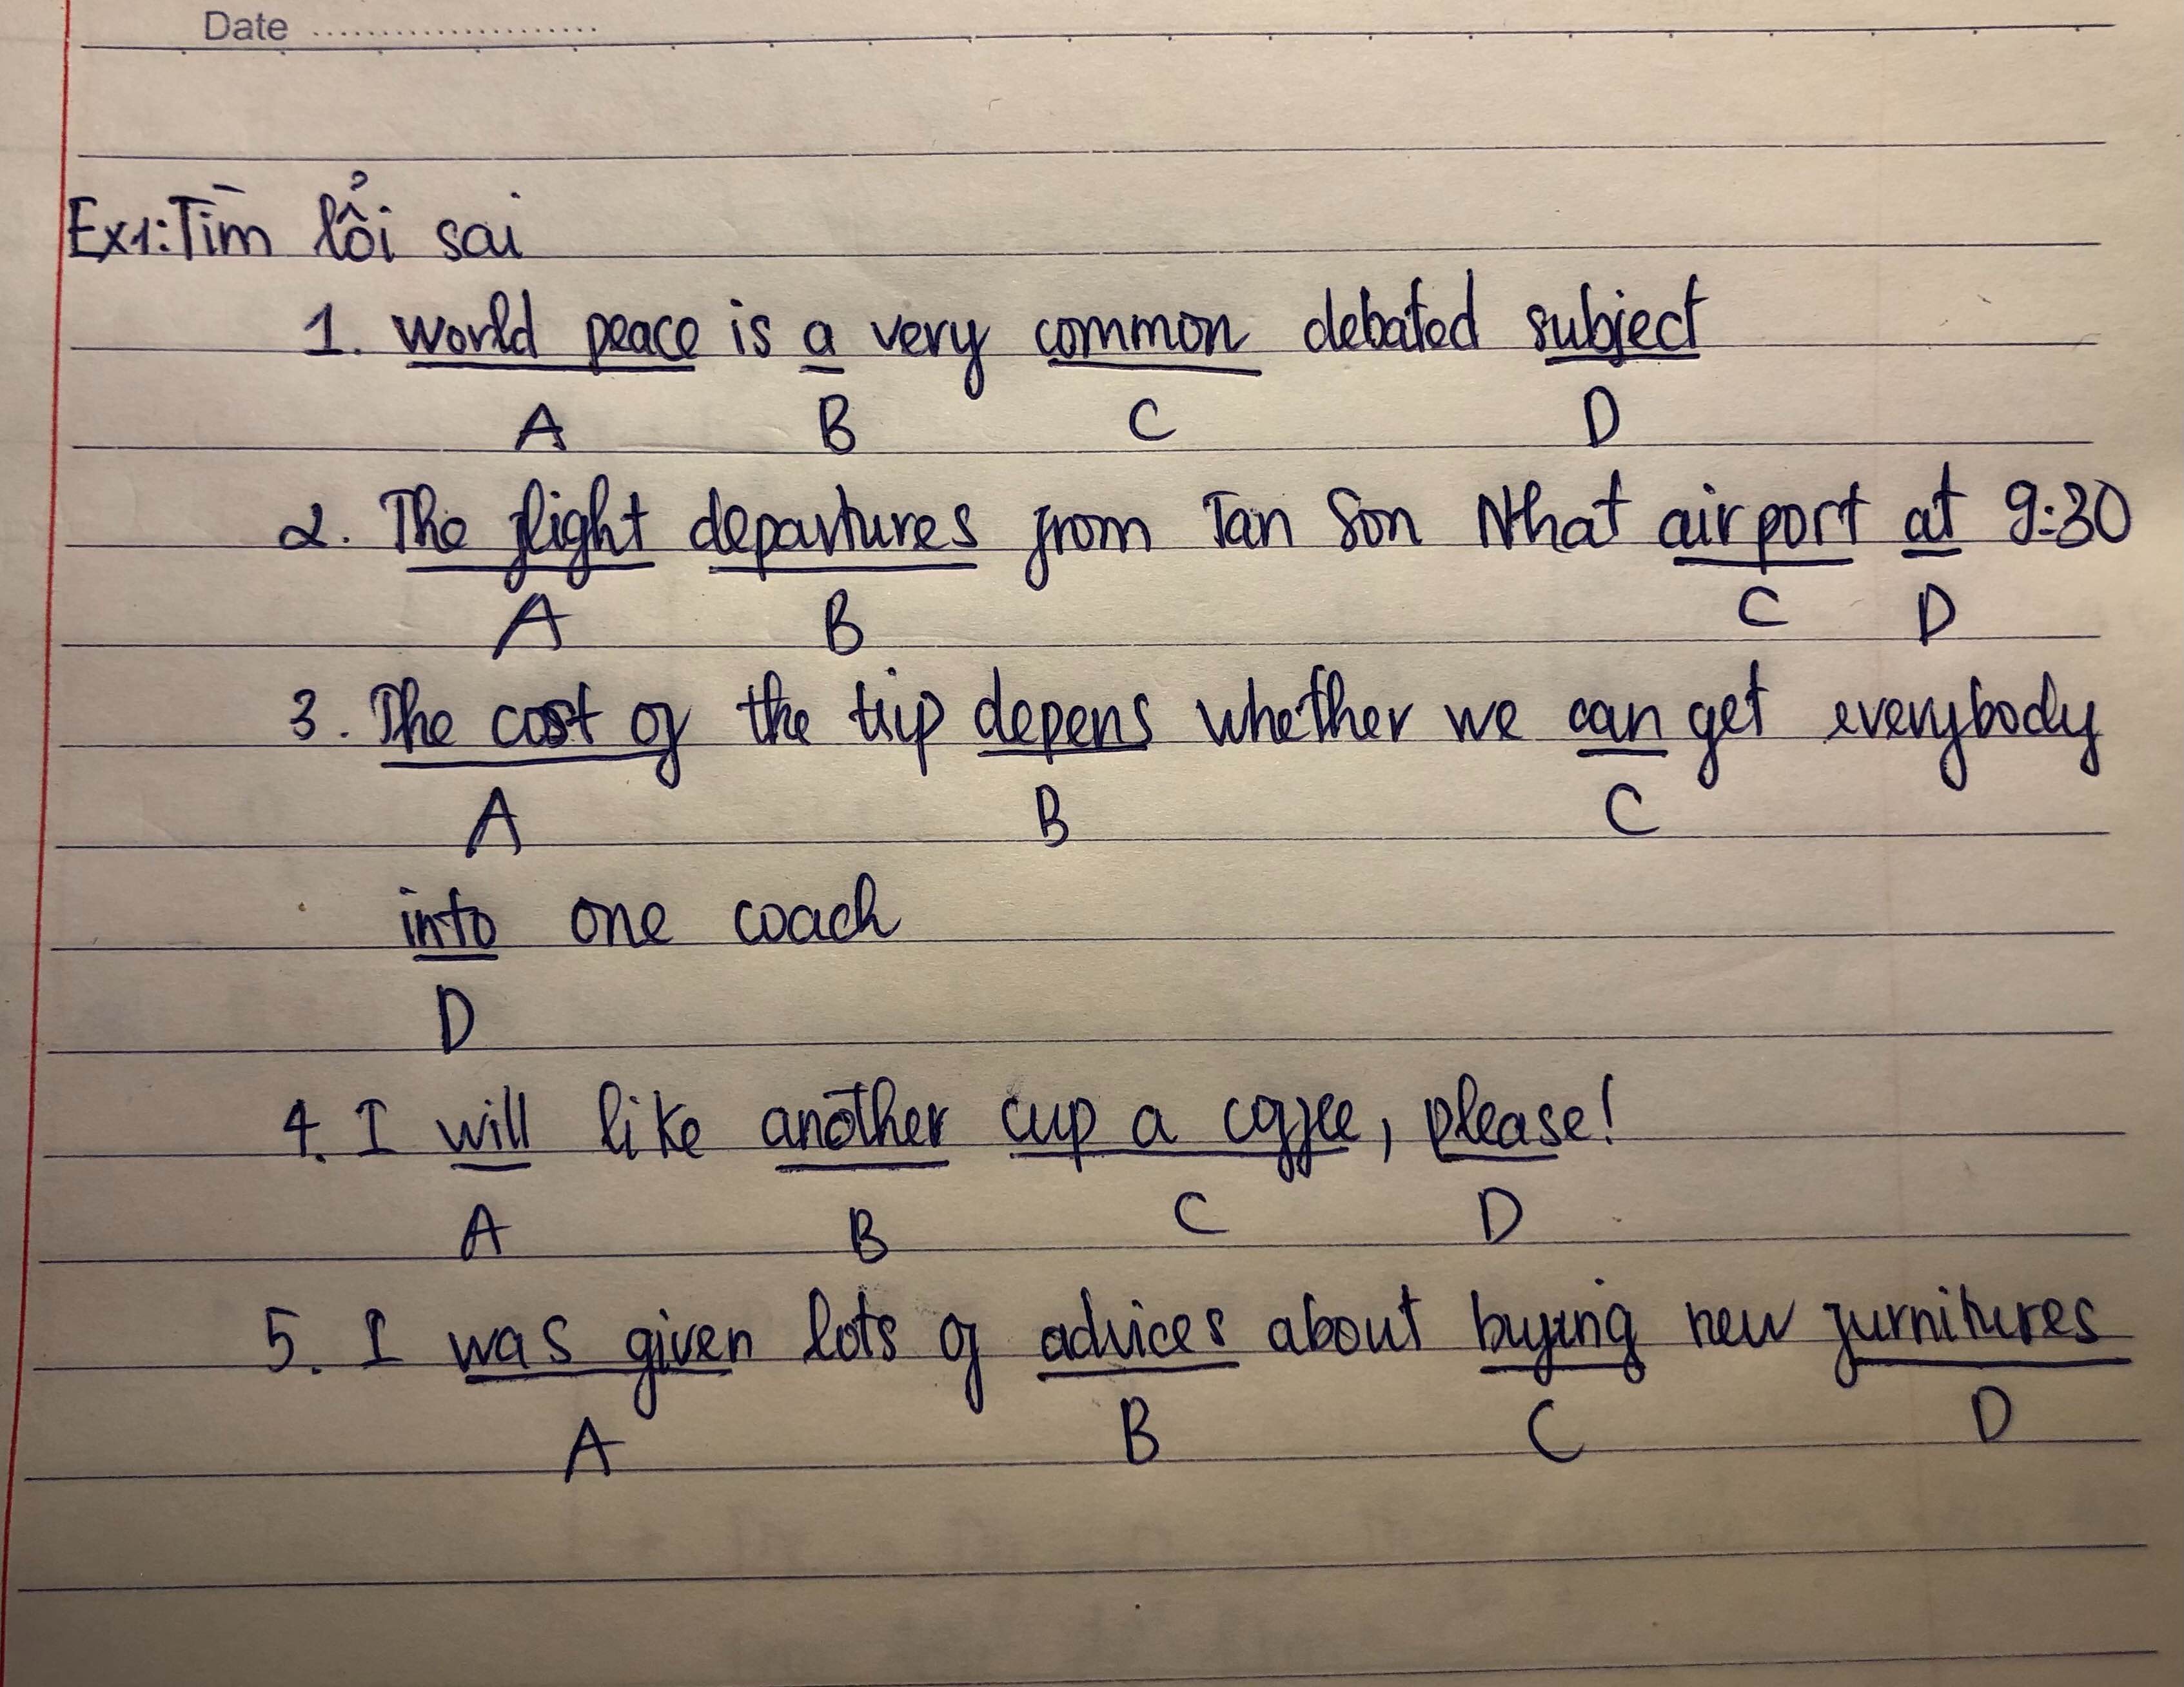 Date ........................
Ex1: Tìm lổi sai
1. World peace is a very common debated subject
A B C D
2. The flight departures from Tan Son Nhat airport at 9:30
A B C D
3. The cost of the trip depens whether we can get everybody
A B C
into one coach
D
4. I will like another cup a coffee, please!
A B C D
5. I was given lots of advices about buying new furnitures
A B C D